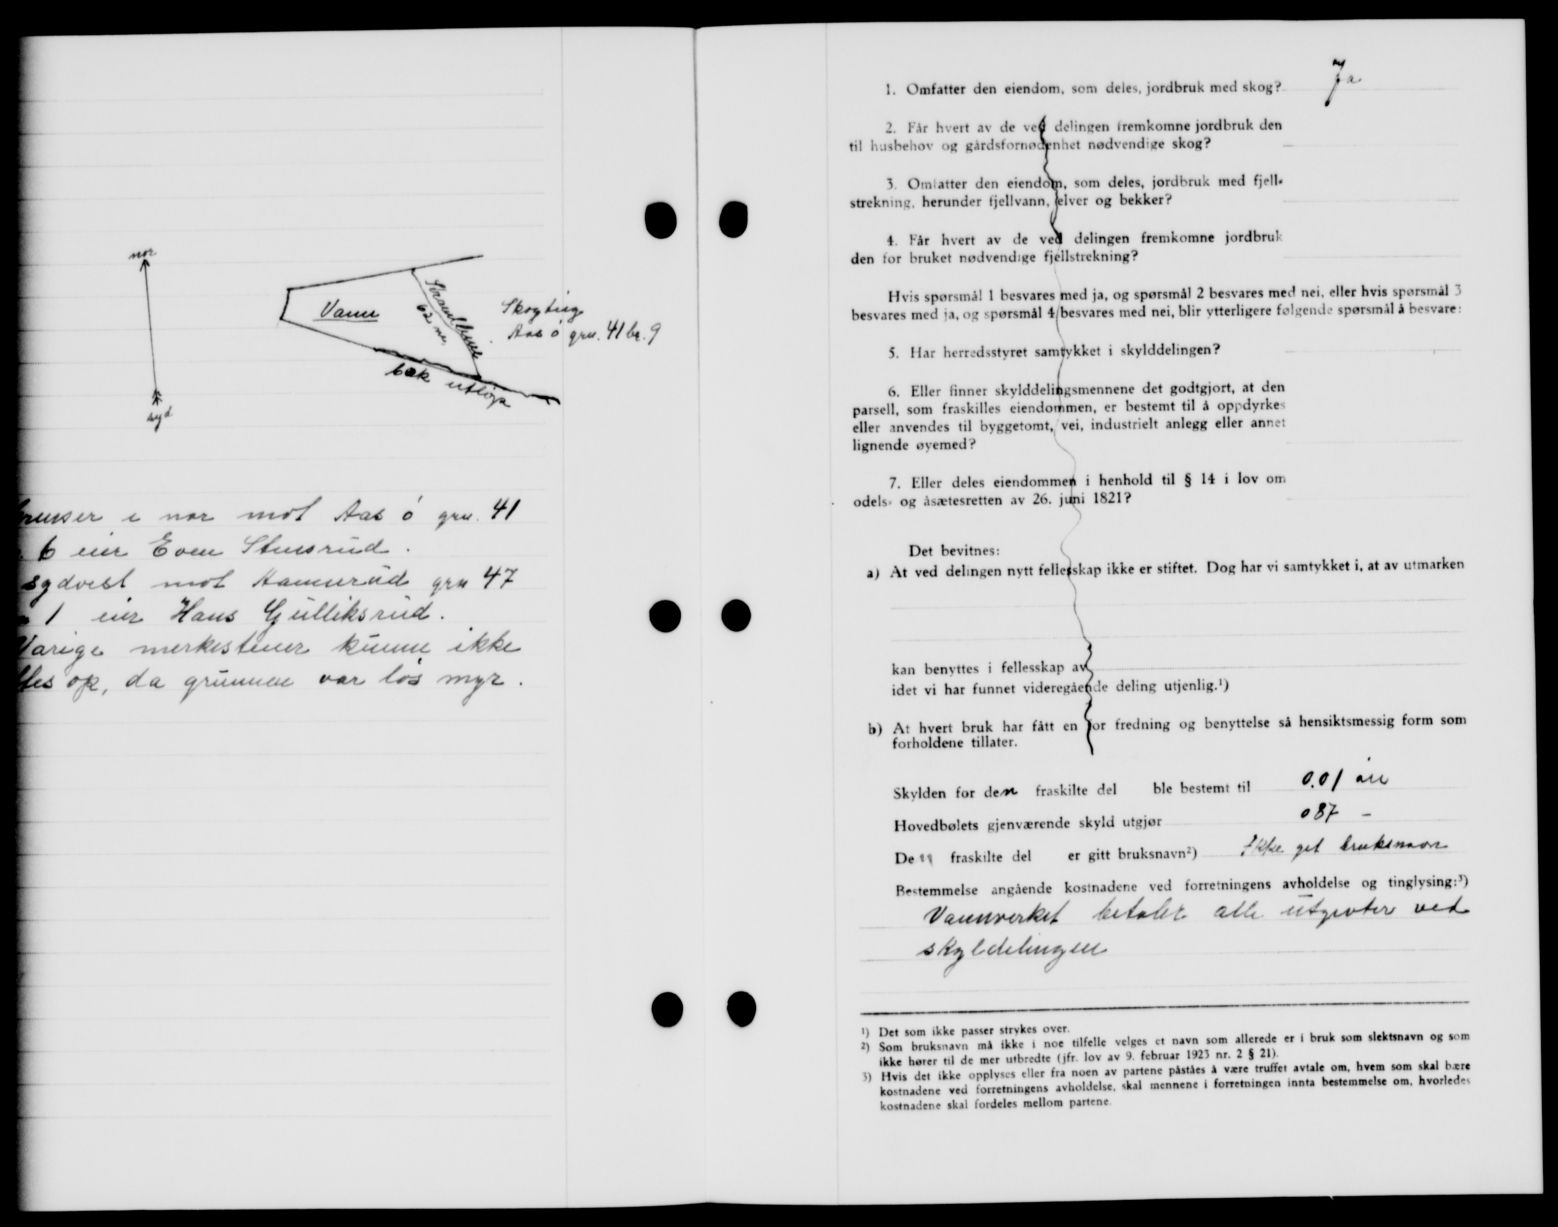 nor
Vann
Strandlinie
62 m.
Skogteig
Aas ø gru. 41 br. 9
bæk utløp
syd
Grenser i nor mot Aas ø gru. 41
6 eier Even Stensrud.
sydvest mot Hammerud gru 47
1 eier Hans Gulliksrud.
Varige merkestener kunne ikke
op, da grunnen var løs myr.
1. Omfatter den eiendom, som deles, jordbruk med skog? Ja
2. Får hvert av de ved delingen fremkomne jordbruk den
til husbehov og gårdsfornødenhet nødvendige skog?
3. Omfatter den eiendom, som deles, jordbruk med fjell-
strekning, herunder fjellvann, elver og bekker?
4. Får hvert av de ved delingen fremkomne jordbruk
den for bruket nødvendige fjellstrekning?
Hvis spørsmål 1 besvares med ja, og spørsmål 2 besvares med nei, eller hvis spørsmål 3
besvares med ja, og spørsmål 4 besvares med nei, blir ytterligere følgende spørsmål å besvare:
5. Har herredsstyret samtykket i skylddelingen?
6. Eller finner skylddelingsmennene det godtgjort, at den
parsell, som fraskilles eiendommen, er bestemt til å oppdyrkes
eller anvendes til byggetomt, vei, industrielt anlegg eller annet
lignende øyemed?
7. Eller deles eiendommen i henhold til § 14 i lov om
odels- og åsætesretten av 26. juni 1821?
Det bevitnes:
a) At ved delingen nytt fellesskap ikke er stiftet. Dog har vi samtykket i, at av utmarken
kan benyttes i fellesskap av
idet vi har funnet videregående deling utjenlig.¹)
b) At hvert bruk har fått en for fredning og benyttelse så hensiktsmessig form som
forholdene tillater.
Skylden for den fraskilte del ble bestemt til 0.01 øre
Hovedbølets gjenværende skyld utgjør 087 -
De n fraskilte del er gitt bruksnavn²) Ikke git bruksnavn
Bestemmelse angående kostnadene ved forretningens avholdelse og tinglysing:³)
Vannverket betaler alle utgivter ved
skyldelingen
¹) Det som ikke passer strykes over.
²) Som bruksnavn må ikke i noe tilfelle velges et navn som allerede er i bruk som slektsnavn og som
ikke hører til de mer utbredte (jfr. lov av 9. februar 1923 nr. 2 § 21).
3) Hvis det ikke opplyses eller fra noen av partene påståes å være truffet avtale om, hvem som skal bære
kostnadene ved forretningens avholdelse, skal mennene i forretningen innta bestemmelse om, hvorledes
kostnadene skal fordeles mellom partene.